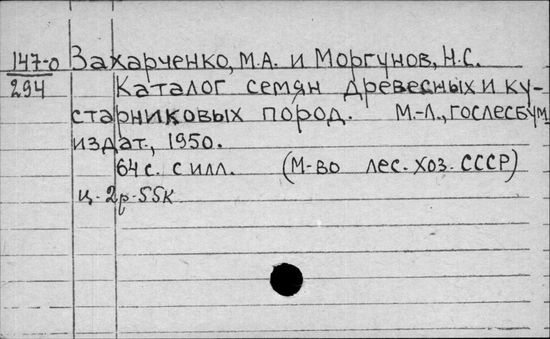 147-0 Захарченко, М.А. и Моргунов, Н.С.
294 Каталог семян древесных и ку-
старниковых пород. М.-Л., Гослесбум
издат., 1950.
64 с. с илл. (М-во лес. хоз. СССР)
ц. 2 р. 55 к